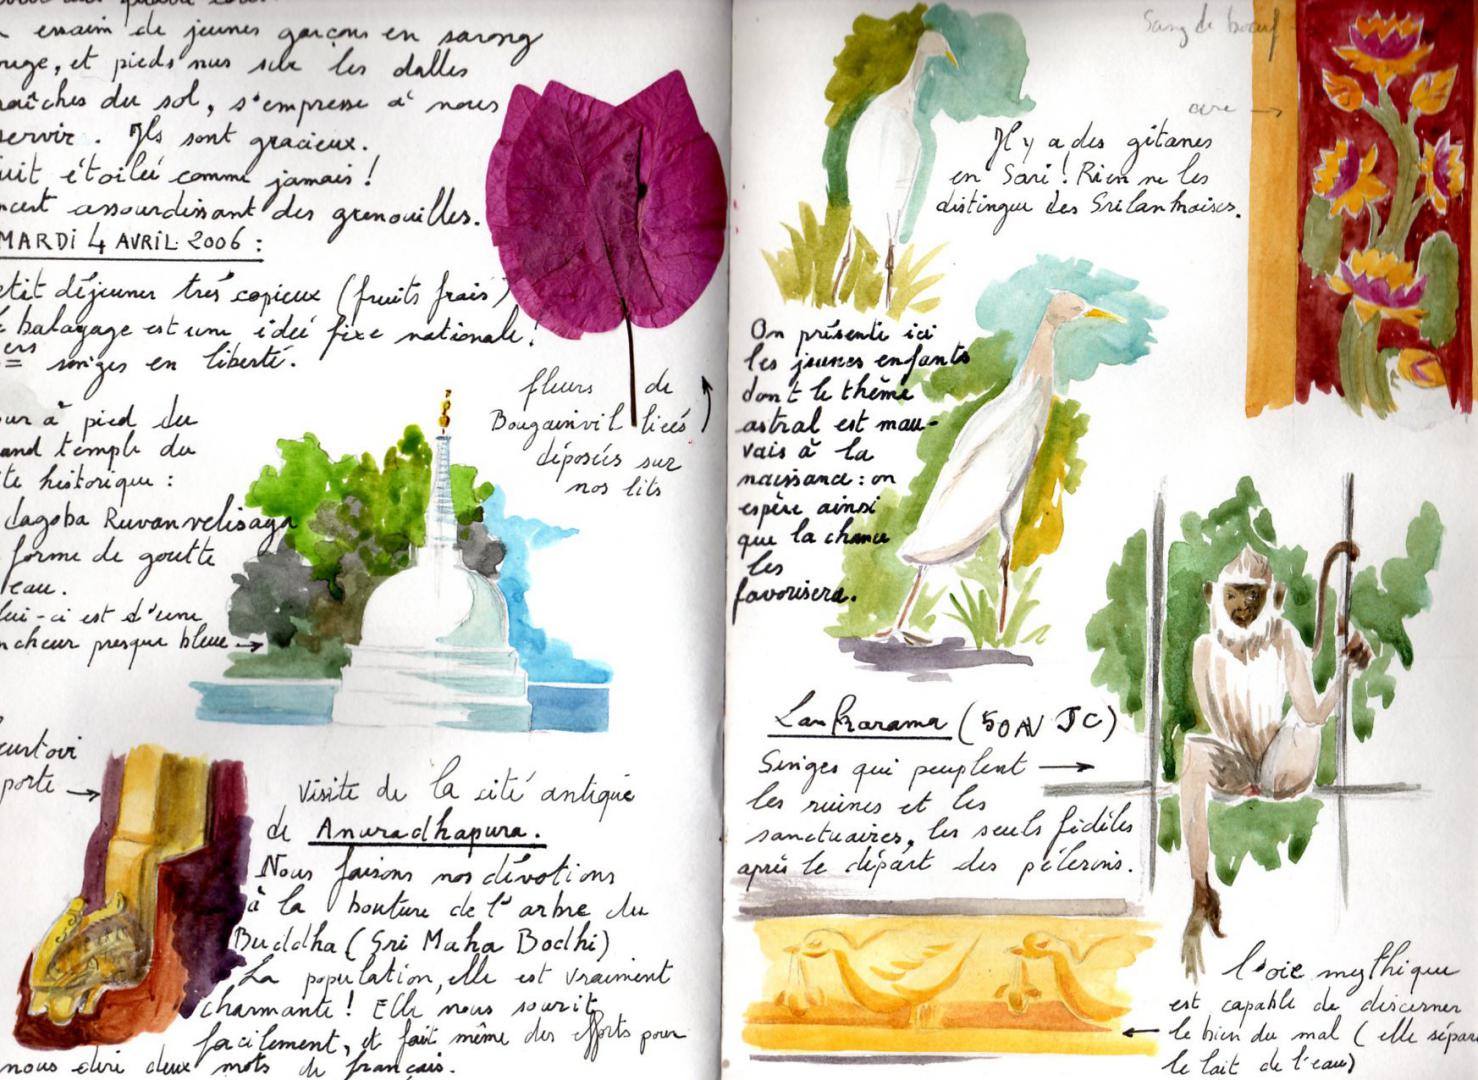 essaim de jeunes garçons en sarong
et pieds nus sur les dalles
du sol, s'empresse à nous
servir. Ils sont gracieux.
étoilée comme jamais !
assourdissant des grenouilles.
MARDI 4 AVRIL 2006 :
déjeuner très copieux (fruits frais)
balayage est une idée fixe nationale !
ers singes en liberté.
à pied du
temple du
historique :
dagoba Ruvanvelisaya
forme de goutte
eau.
est d'une
presque bleue →
porte →
fleurs de
Bougainvillieés
déposées sur
nos lits
Visite de la cité antique
de Anuradhapura.
Nous faisons nos dévotions
à la bouture de l'arbre du
Buddha (Sri Maha Bodhi)
La population, elle est vraiment
charmante ! Elle nous sourit
facilement, et fait même des efforts pour
nous dire deux mots de français.
Sang de boeuf
ocre →
Il y a des gitanes
en Sari ! Rien ne les
distingue des Srilankaises.
On présente ici
les jeunes enfants
dont le thème
astral est mau-
vais à la
naissance : on
espère ainsi
que la chance
les
favorisera.
Lankarama (50 AV JC)
Singes qui peuplent →
les ruines et les
sanctuaires, les seuls fidèles
après le départ des pélerins.
l'oie mythique
est capable de discerner
← le bien du mal (elle sépare
le lait de l'eau)